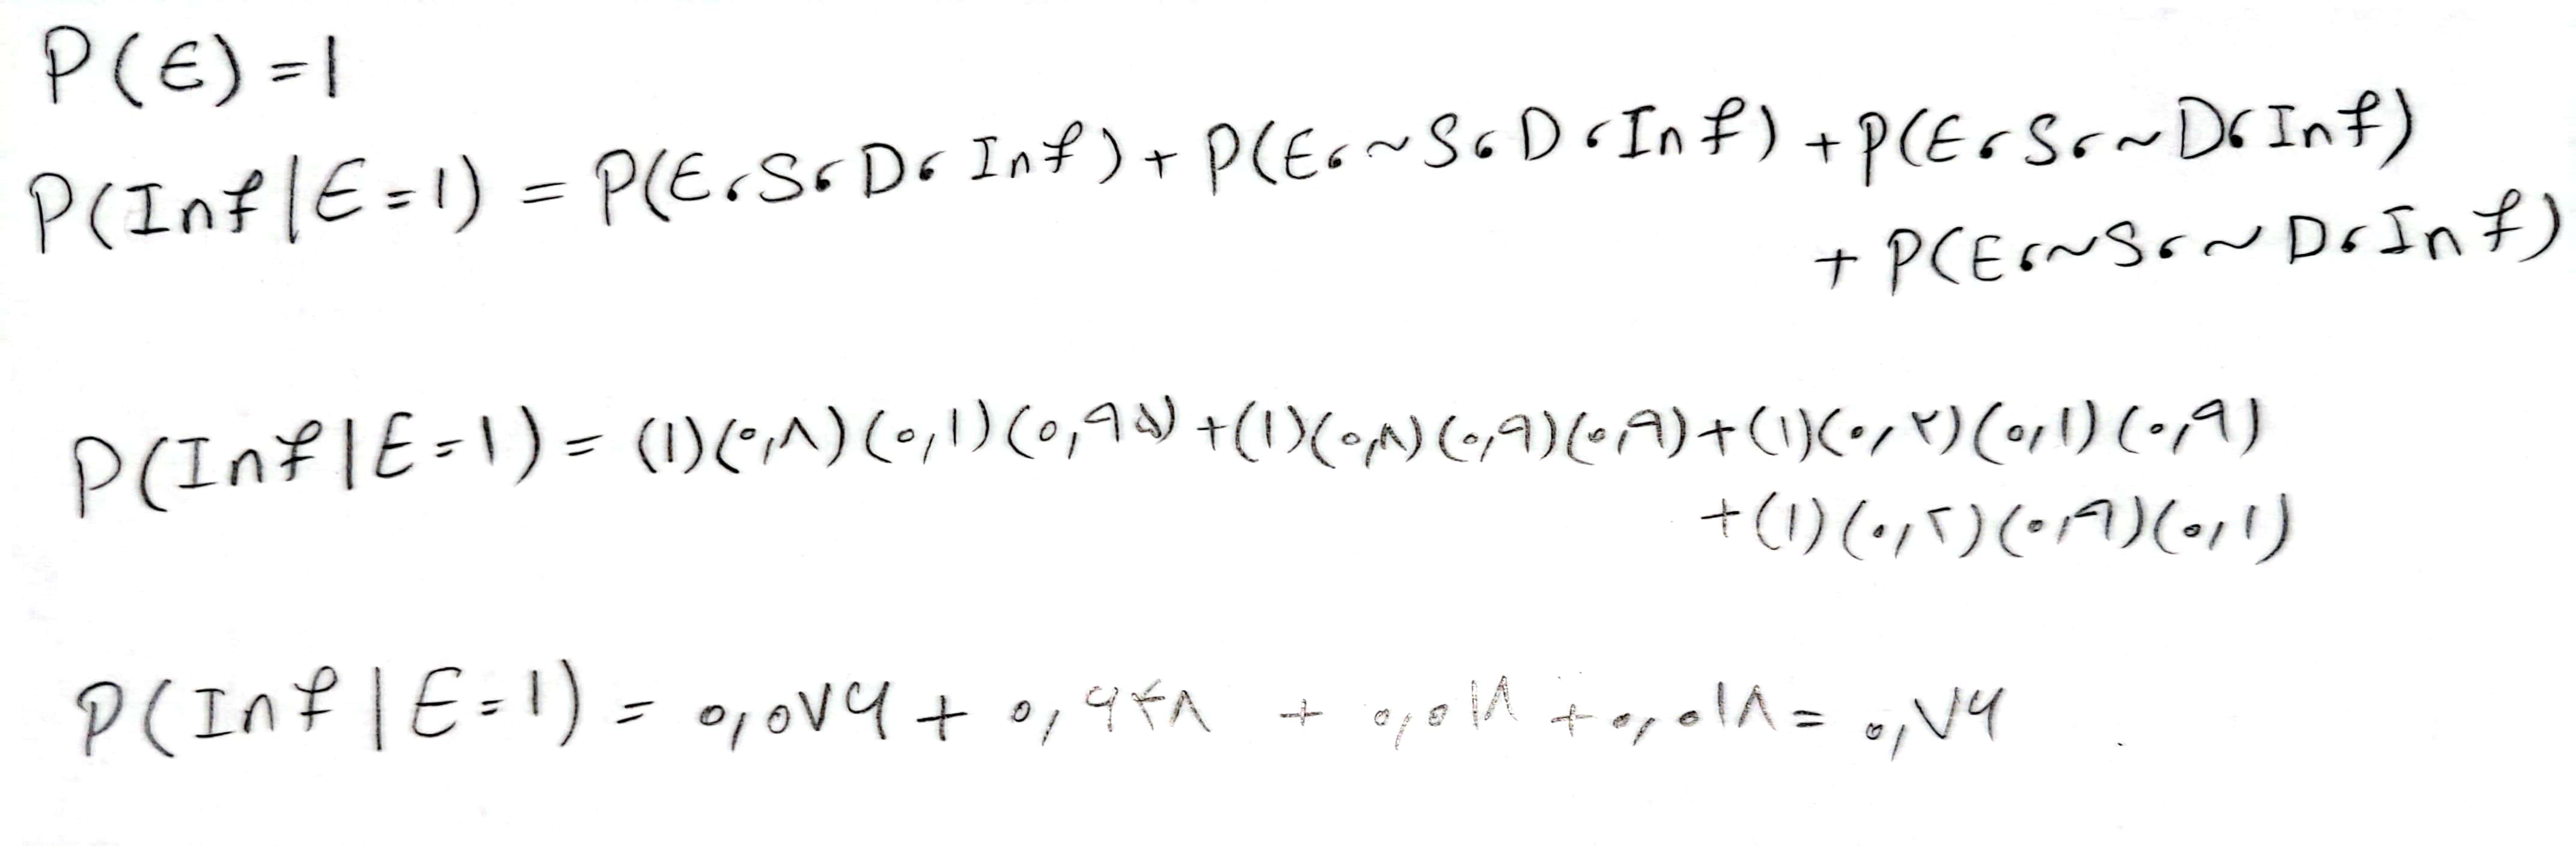 P(E)=1
P(Inf|E=1) = P(E،S،D،Inf) + P(E،~S،D،Inf) + P(E،S،~D،Inf)
+ P(E،~S،~D،Inf)
P(Inf|E=1) = (1)(۰,۸)(۰,۱)(۰,۹۵)+(1)(۰,۸)(۰,۹)(۰,۹)+(1)(۰,۲)(۰,۱)(۰,۹)
+(1)(۰,۲)(۰,۹)(۰,۱)
P(Inf|E=1) = ۰,۰۷۶ + ۰,۶۴۸ + ۰,۰۱۸ + ۰,۰۱۸ = ۰,۷۶